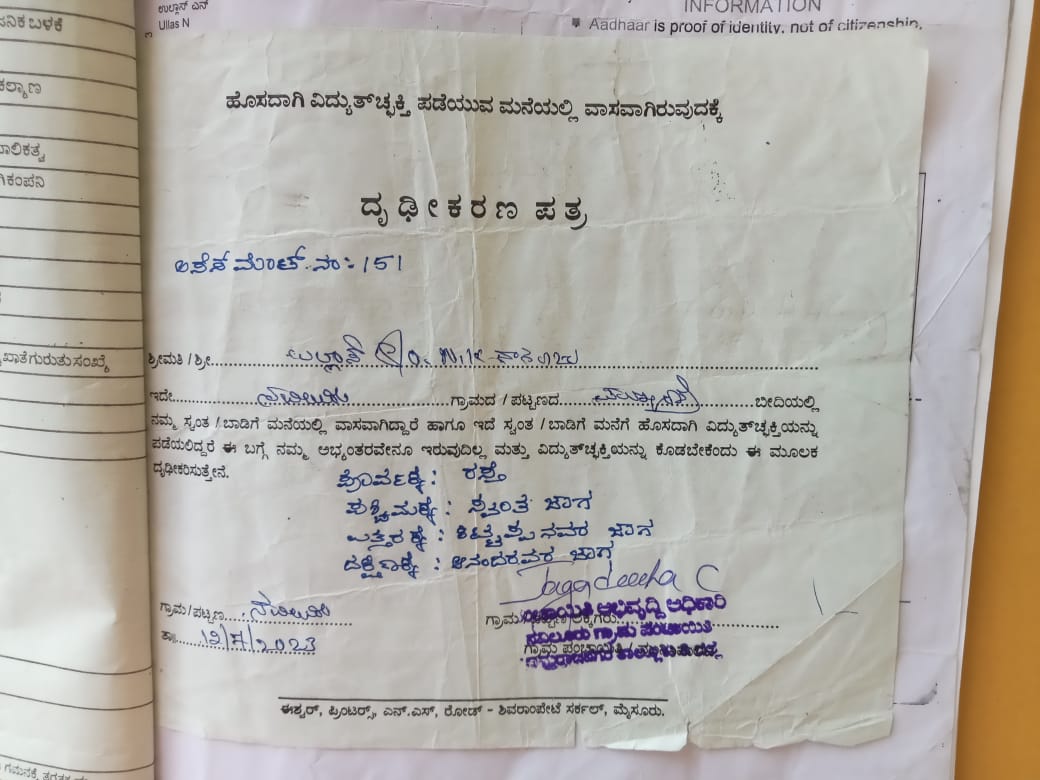 ಉಲ್ಲಾಸ್ ಎನ್
Ullas N
INFORMATION
Aadhaar is proof of identity, not of citizenship.
ನಿಕ ಬಳಕೆ
ಕಲ್ಯಾಣ
ಾಲಿಕತ್ವ
ಗಿಕಂಪನಿ
ಖಾತೆಗುರುತು ಸಂಖ್ಯೆ
ಹೊಸದಾಗಿ ವಿದ್ಯುತ್‌ಚ್ಛಕ್ತಿ ಪಡೆಯುವ ಮನೆಯಲ್ಲಿ ವಾಸವಾಗಿರುವುದಕ್ಕೆ
ದೃಢೀಕರಣ ಪತ್ರ
ಅಸೆಸ್‌ಮೆಂಟ್ ನಂ: 151
ಶ್ರೀಮತಿ / ಶ್ರೀ ಉಲ್ಲಾಸ್
ಇದೇ ನವಿಲೂರು ಗ್ರಾಮದ / ಪಟ್ಟಣದ ಬೀದಿಯಲ್ಲಿ
ನಮ್ಮ ಸ್ವಂತ / ಬಾಡಿಗೆ ಮನೆಯಲ್ಲಿ ವಾಸವಾಗಿದ್ದಾರೆ ಹಾಗೂ ಇದೆ ಸ್ವಂತ / ಬಾಡಿಗೆ ಮನೆಗೆ ಹೊಸದಾಗಿ ವಿದ್ಯುತ್‌ಚ್ಛಕ್ತಿಯನ್ನು
ಪಡೆಯಲಿದ್ದರೆ ಈ ಬಗ್ಗೆ ನಮ್ಮ ಅಭ್ಯಂತರವೇನೂ ಇರುವುದಿಲ್ಲ ಮತ್ತು ವಿದ್ಯುತ್‌ಚ್ಛಕ್ತಿಯನ್ನು ಕೊಡಬೇಕೆಂದು ಈ ಮೂಲಕ
ದೃಢೀಕರಿಸುತ್ತೇನೆ.
ಪೂರ್ವಕ್ಕೆ: ರಸ್ತೆ
ಪಶ್ಚಿಮಕ್ಕೆ: ಸ್ವಂತ ಜಾಗ
ಉತ್ತರಕ್ಕೆ: ಕಿಟ್ಟಪ್ಪನವರ ಜಾಗ
ದಕ್ಷಿಣಕ್ಕೆ: ಆನಂದರವರ ಜಾಗ
Jagadeesha C
ಗ್ರಾಮ/ಪಟ್ಟಣ ನವಿಲೂರು
ತಾ. 12/7/2023
ಪಂಚಾಯಿತಿ ಅಭಿವೃದ್ಧಿ ಅಧಿಕಾರಿ
ನವಿಲೂರು ಗ್ರಾಮ ಪಂಚಾಯಿತಿ
ಈಶ್ವರ್, ಪ್ರಿಂಟರ್ಸ್, ಎನ್.ಎಸ್, ರೋಡ್ - ಶಿವರಾಂಪೇಟೆ ಸರ್ಕಲ್, ಮೈಸೂರು.